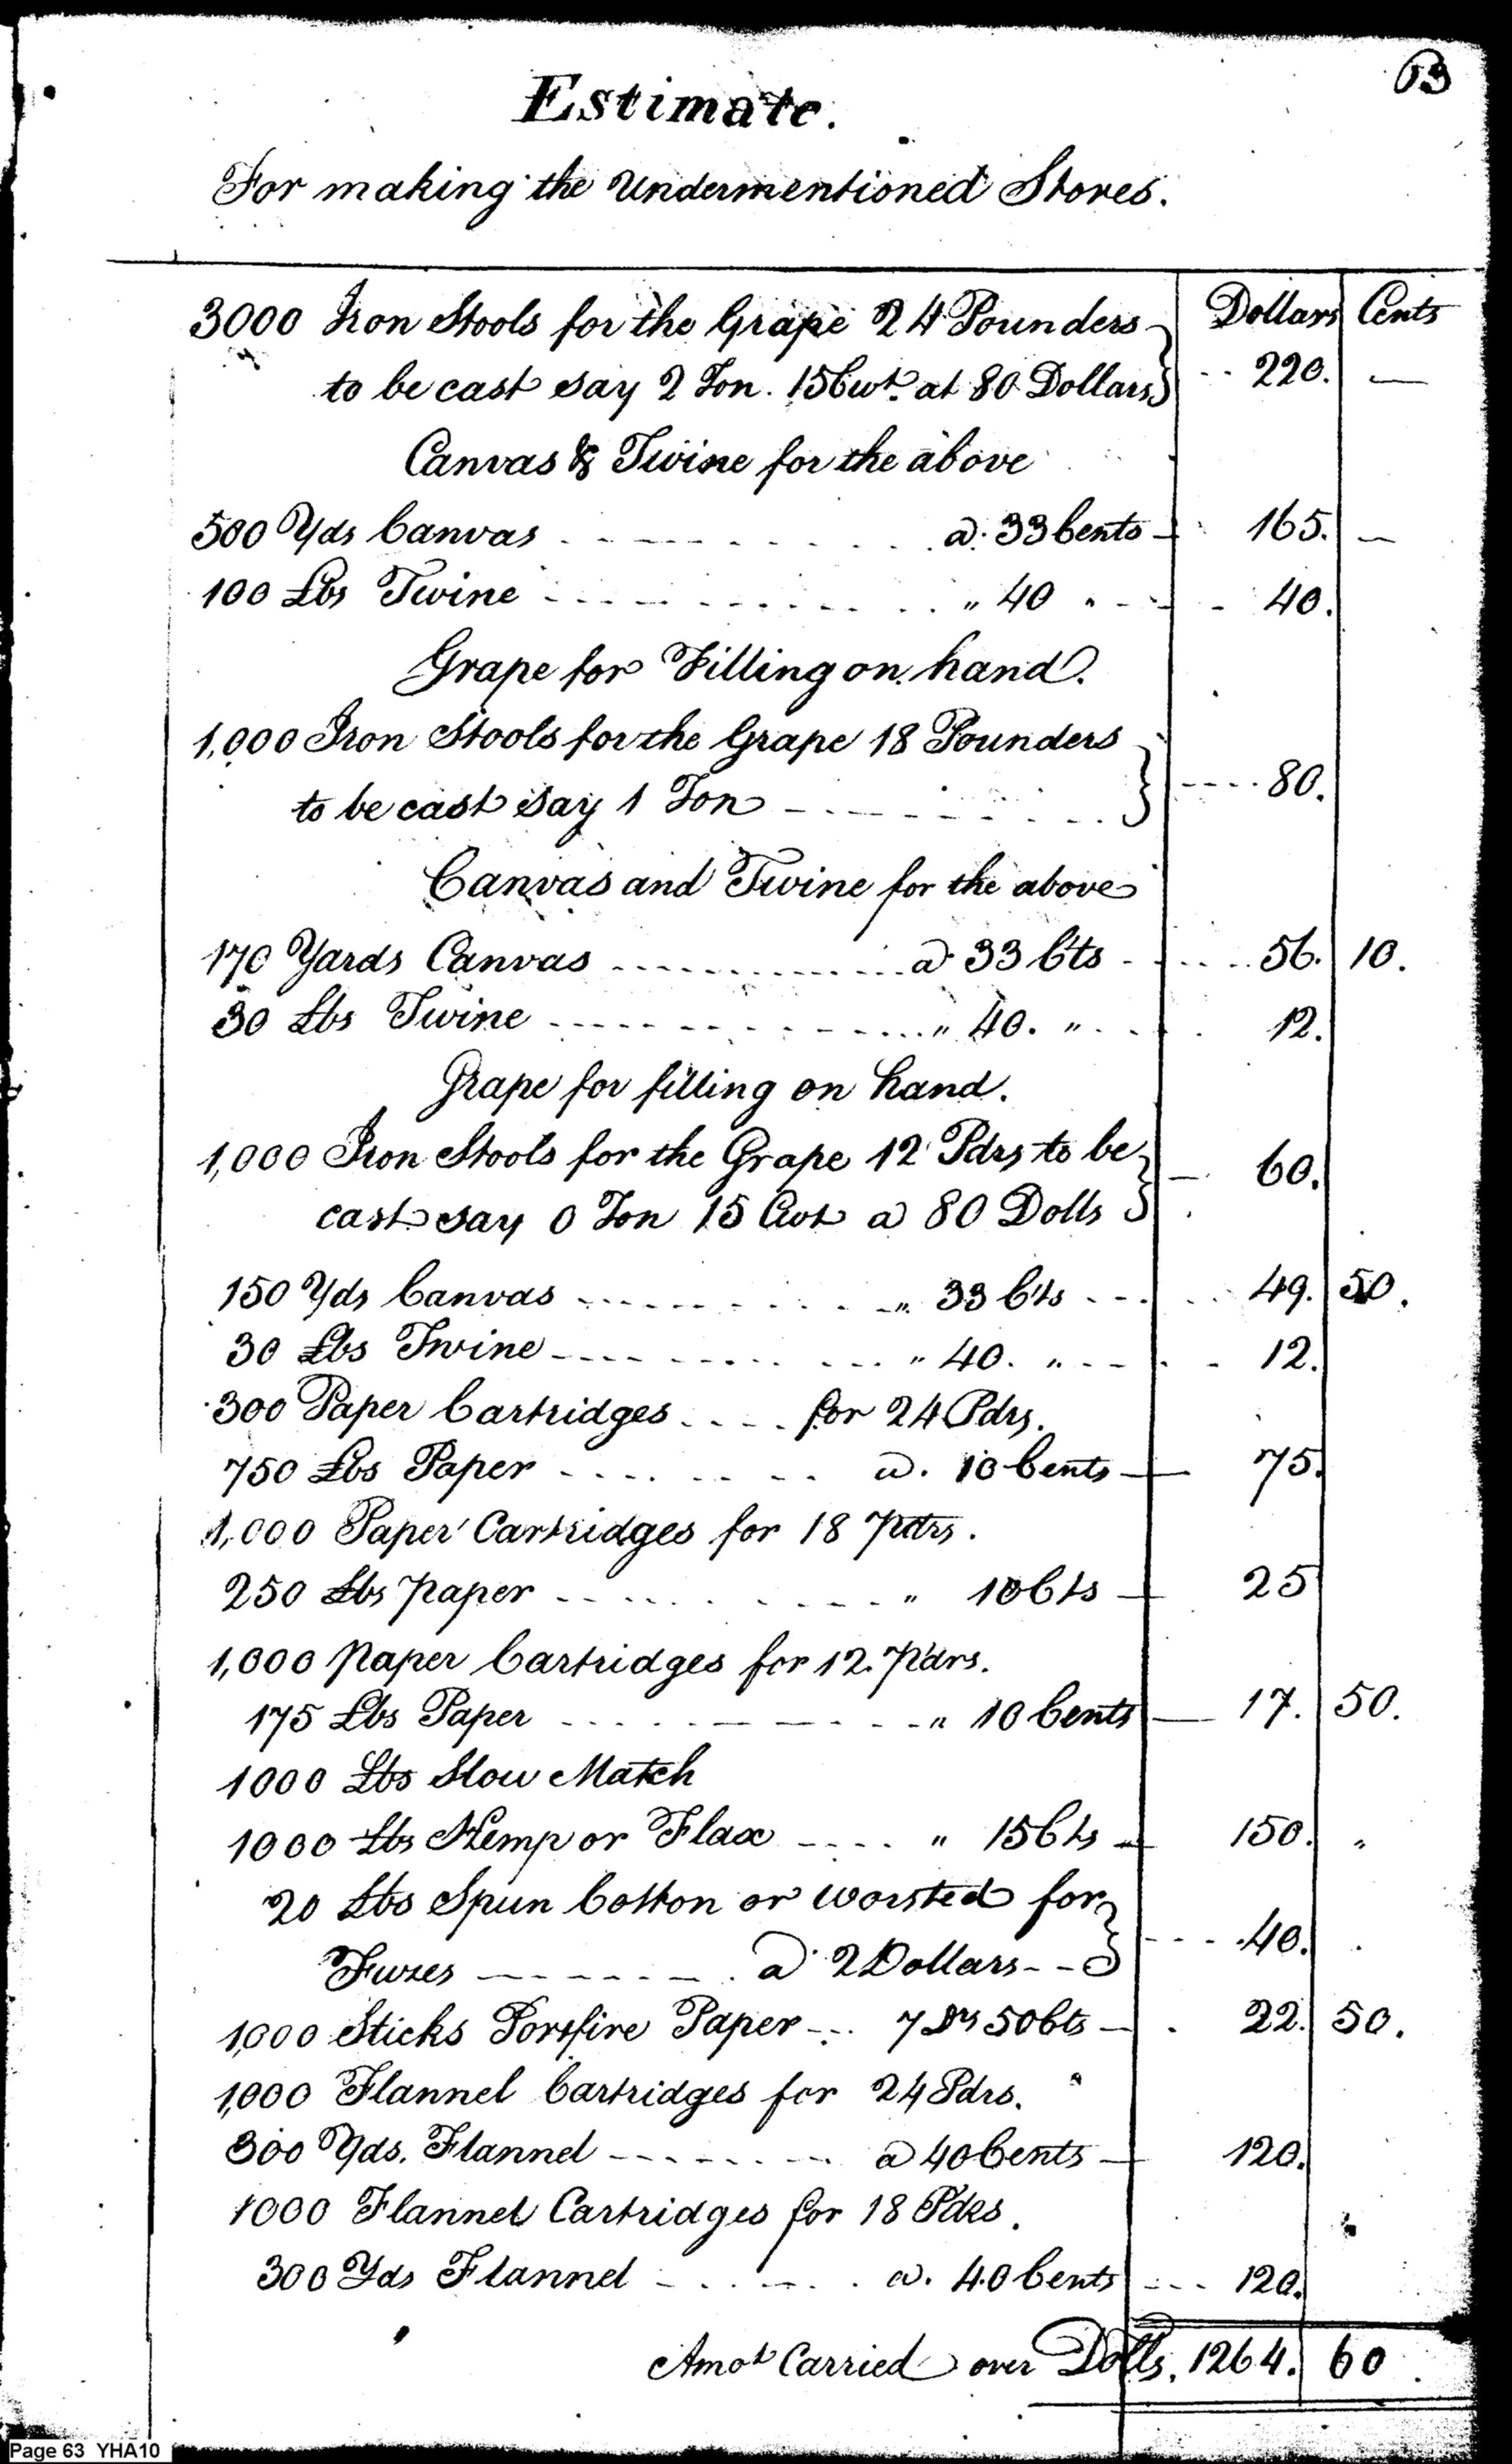 63
Estimate.
For making the Undermentioned Stores.
Dollars Cents
3000 Iron Stools for the Grape 24 Pounders
to be cast say 2 Ton. 15 Cwt. at 80 Dollars -- 220. —
Canvas & Twine for the above
500 Yds Canvas - - - - - - - - a. 33 Cents - 165. —
100 Lbs Twine - - - - - - - - " 40 " - - - 40.
Grape for Filling on hand.
1,000 Iron Stools for the Grape 18 Pounders
to be cast say 1 Ton - - - - - - - - - - - 80.
Canvas and Twine for the above
170 Yards Canvas - - - - - - - - a 33 Cts - - - - 56. 10.
30 Lbs Twine - - - - - - - - " 40. " - - 12.
Grape for filling on hand.
1,000 Iron Stools for the Grape 12 Pdrs to be
cast say 0 Ton 15 Cwt a 80 Dolls — 60.
150 Yds Canvas - - - - - - - - " 33 Cts - - - 49. 50.
30 Lbs Twine - - - - - - - - " 40. " - - - 12.
300 Paper Cartridges - - - - for 24 Pdrs.
750 Lbs Paper - - - - - - a. 10 Cents — 75.
1,000 Paper Cartridges for 18 pdrs.
250 Lbs paper - - - - - - - - " 10 Cts — 25
1,000 paper Cartridges for 12. Pdrs.
175 Lbs Paper - - - - - - - - " 10 Cents — 17. 50.
1000 Lbs Slow Match
1000 Lbs Hemp or Flax - - - - " 15 Cts - 150. "
20 Lbs Spun Cotton or worsted for
Fuzes - - - - - - . a 2 Dollars - - - - - 40. .
1,000 Sticks Portfire Paper - - - 7 Drs 50 Cts — . 22. 50.
1,000 Flannel Cartridges for 24 Pdrs. "
300 Yds. Flannel - - - - - - - a 40 Cents — 120.
1000 Flannel Cartridges for 18 Pdrs.
300 Yds Flannel - - - - - . a. 40 Cents - - - 120.
Amot Carried over Dolls. 1264. 60
Page 63 YHA10